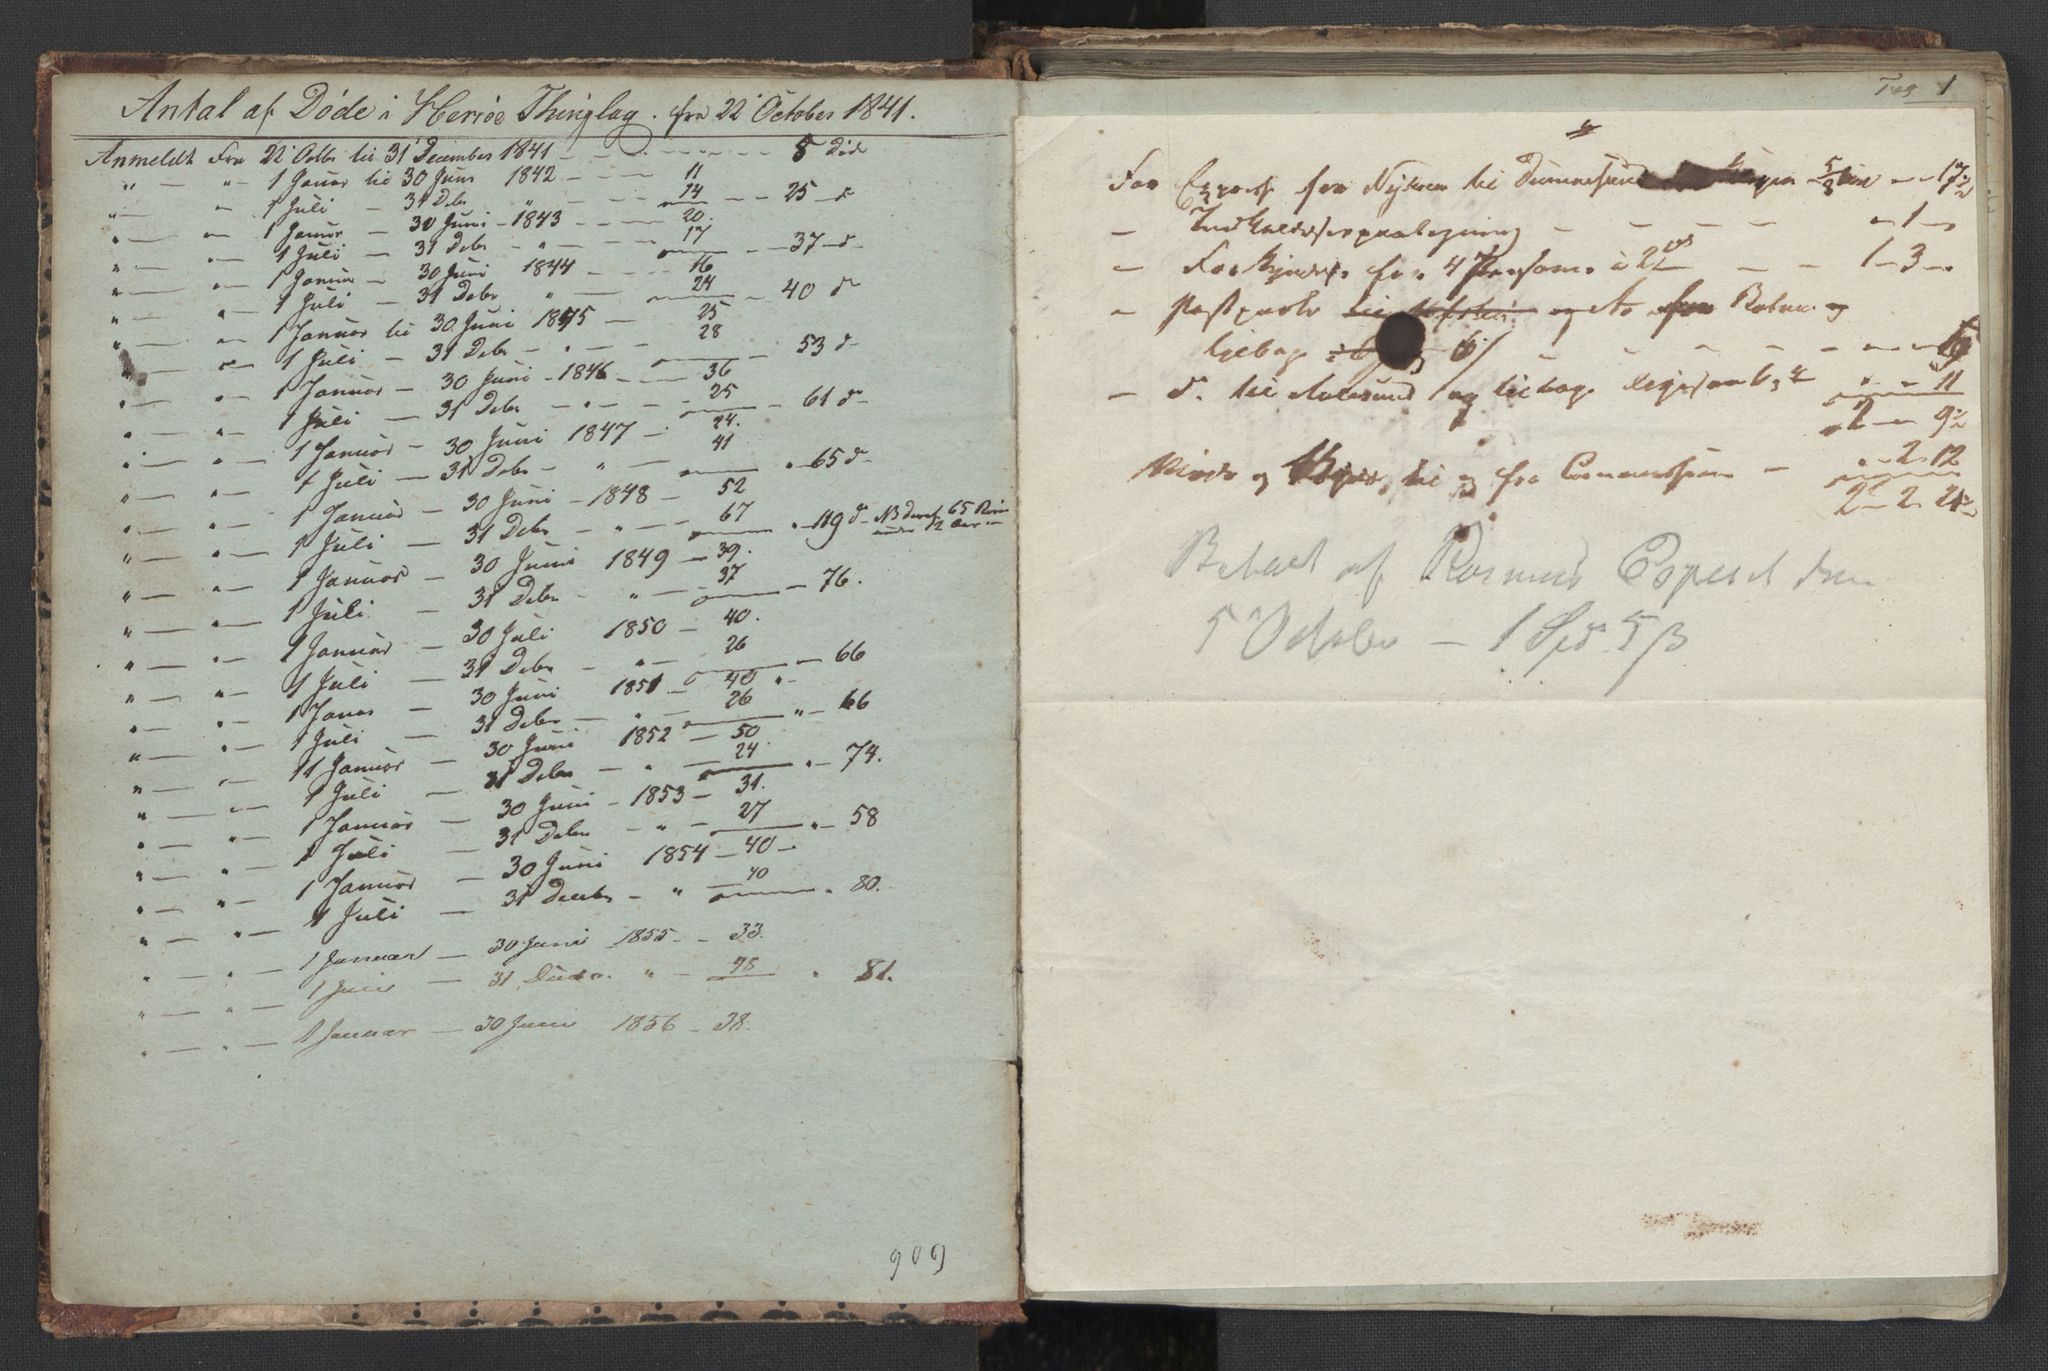 Antal af Døde i Herröe Thinglag. fra 22 October 1841.
Anmeldt Fra 22 Octbr til 31 December 1841 — 5 Død
" — " — 1 Januar til 30 Juni 1842 — 11
" — " 1 Juli — 31 Debr " — 14 — 25 d
" — " 1 Januar — 30 Juni — 1843 — 20.
" — " 1 Juli — 31 Debr — " — 17 — 37 d
" — " 1 Januar — 30 Juni 1844 — 16
" — " 1 Juli — 31 Debr " — 24 — 40 d
" — " 1 Januar til 30 Juni 1845 — 25
" — " 1 Juli — 31 Debr — " — 28 — 53 d
" — " 1 Januar — 30 Juni — 1846 — 36
" — " 1 Juli — 31 Debr — " — 25 — 61 d
" — " 1 Januar — 30 Juni 1847 — 24.
" — " 1 Juli — 31 Debr — " — 41 " 65 d
" — " 1 Januar — 30 Juni — 1848 — 52
" — " 1 Juli — 31 Debr — " — 67 " 119 d NB deraf 65 Børn
under 12 Aar
" — " 1 Januar — 30 Juni 1849 — 39.
" — " 1 Juli — 31 Debr — " — 37 — 76.
" — " 1 Januar — 30 Juli 1850 — 40.
" — " 1 Juli — 31 Debr — " — 26 — 66
" — " 1 Janar — 30 Juni 1851 — 40 "
" — " 1 Juli — 31 Debr — " — 26 " — 66
" — " 1 Januar — 30 Juni 1852 — 50
" — " 1 Juli — 31 Debr — " — 24. " — 74.
" — " 1 Januar — 30 Juni — 1853 — 31.
" — " 1 Juli — 31 Debr — " — 27 " — 58
" — " 1 Januar — 30 Juni 1854 — 40 —
" — " 1 Juli — 31 Decbr — " — 40 " 80.
" — " 1 Januar — 30 Juni 1855 — 33.
" — " 1 Juli — 31 Decbr. " — 48 " 81.
" — " — 1 Januar — 30 Juni 1856 — 38.
909
1
For Express fra til 5/8 Miil — 17½
— — 1 —
— for 4 Personer à 2 — 1 — 3 —
— Postporto og fra
tilbage 6/ — 6
— d. til Aalesund og tilbage — 11
2 — 9½
og til og fra Commissionen — " 2 12
2 2 21½
Betalt af Rasmus Espeset den
5 October — 1 Spd 5 β